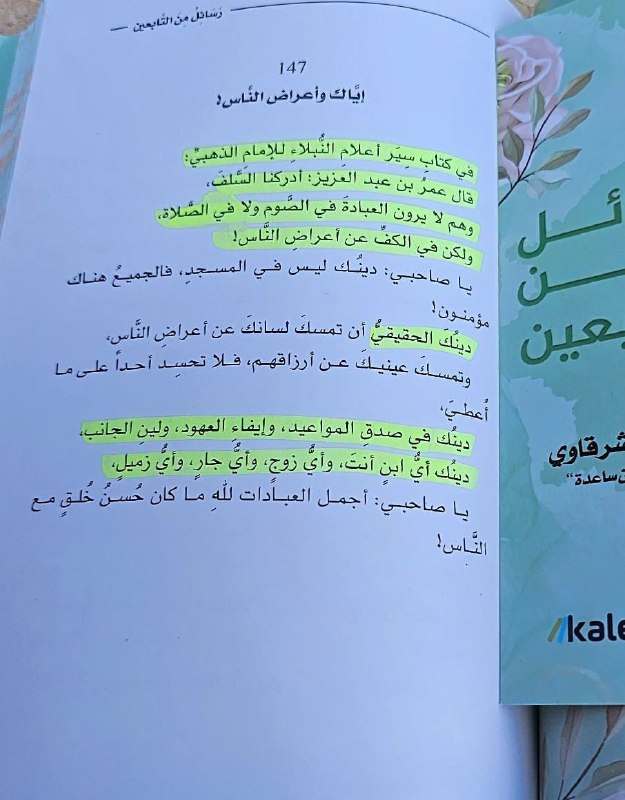 رَسَائِلُ مِنَ التَّابعين
147
إيَّاكَ وأعراض النَّاس!
في كتابِ سِيَر أعلامِ النُّبلاءِ للإمام الذهبيِّ:
قال عمرُ بن عبد العزيز: أدركنا السَّلفَ،
وهم لا يرون العبادةَ في الصَّوم ولا في الصَّلاة،
ولكن في الكفِّ عن أعراضِ النَّاس!
يا صاحبي: دينُك ليس في المسجدِ، فالجميعُ هناك
مؤمنون!
دينُكَ الحقيقيُّ أن تمسكَ لسانكَ عن أعراضِ النَّاس،
وتمسكَ عينيكَ عن أرزاقهم، فلا تحسِد أحداً على ما
أُعطيَ،
دينُك في صدقِ المواعيد، وإيفاءِ العهود، ولينِ الجانب،
دينُك أيُّ ابنٍ أنتَ، وأيُّ زوجٍ، وأيُّ جارٍ، وأيُّ زميلٍ،
يا صاحبي: أجمل العبادات للهِ ما كان حُسنُ خُلقٍ مع
النَّاس!
ئل
ن
بعين
شرقاوي
ن ساعدة"
kale